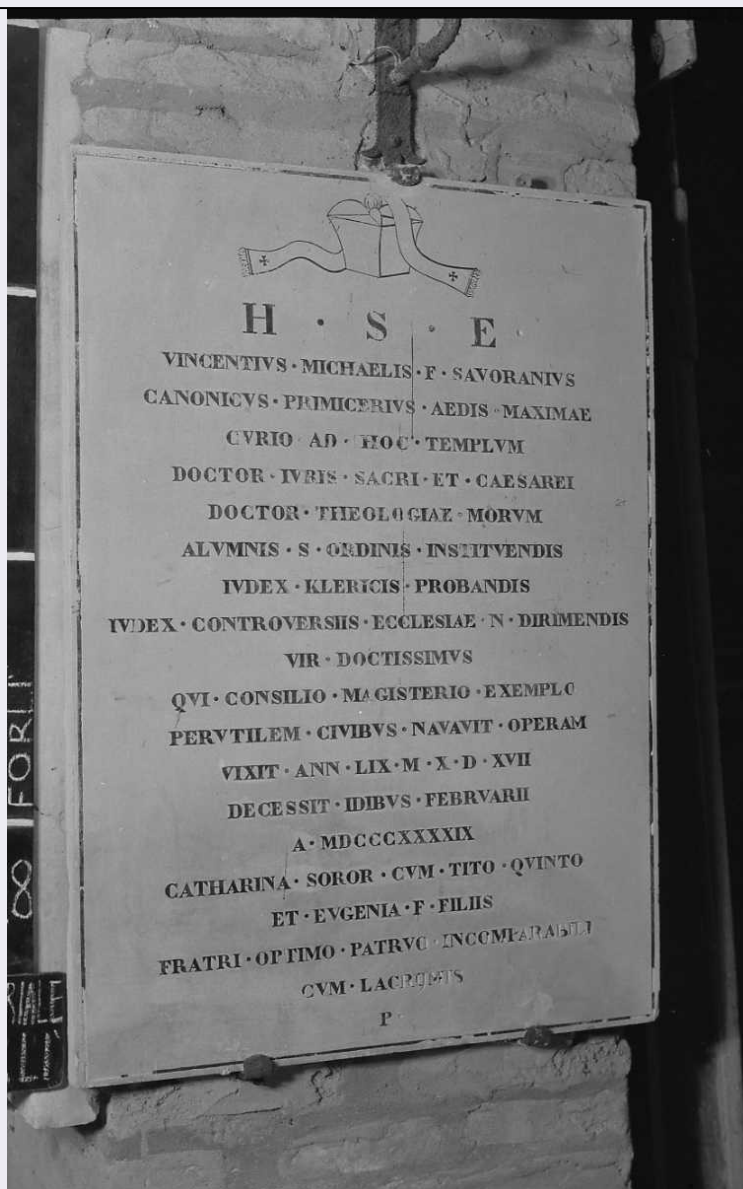 H · S · E
VINCENTIVS · MICHAELIS · F · SAVORANIVS
CANONICVS · PRIMICERIVS · AEDIS · MAXIMAE
CVRIO AD · HOC · TEMPLVM
DOCTOR · IVRIS · SACRI · ET · CAESAREI
DOCTOR · THEOLOGIAE · MORVM
ALVMNIS · S · ORDINIS · INSTITVENDIS
IVDEX · KLERICIS · PROBANDIS
IVDEX · CONTROVERSIIS · ECCLESIAE · N · DIRIMENDIS
VIR · DOCTISSIMVS
QVI · CONSILIO · MAGISTERIO · EXEMPLO
PERVTILEM · CIVIBVS · NAVAVIT · OPERAM
VIXIT · ANN · LIX · M · X · D · XVII
DECESSIT · IDIBVS · FEBRVARII
A · MDCCCXXXXIX
CATHARINA · SOROR · CVM · TITO · QVINTO
ET · EVGENIA · F · FILIIS
FRATRI · OPTIMO · PATRVO · INCOMPARABILI
CVM · LACRIMIS
P
FORLI
8